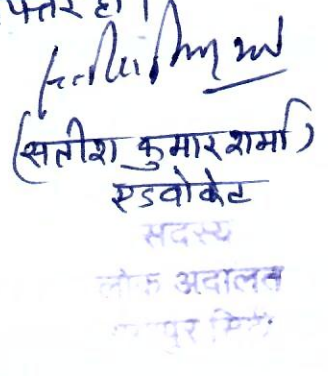 दफ्तर हो।
(सतीश कुमार शर्मा)
एडवोकेट
सदस्य
लोक अदालत